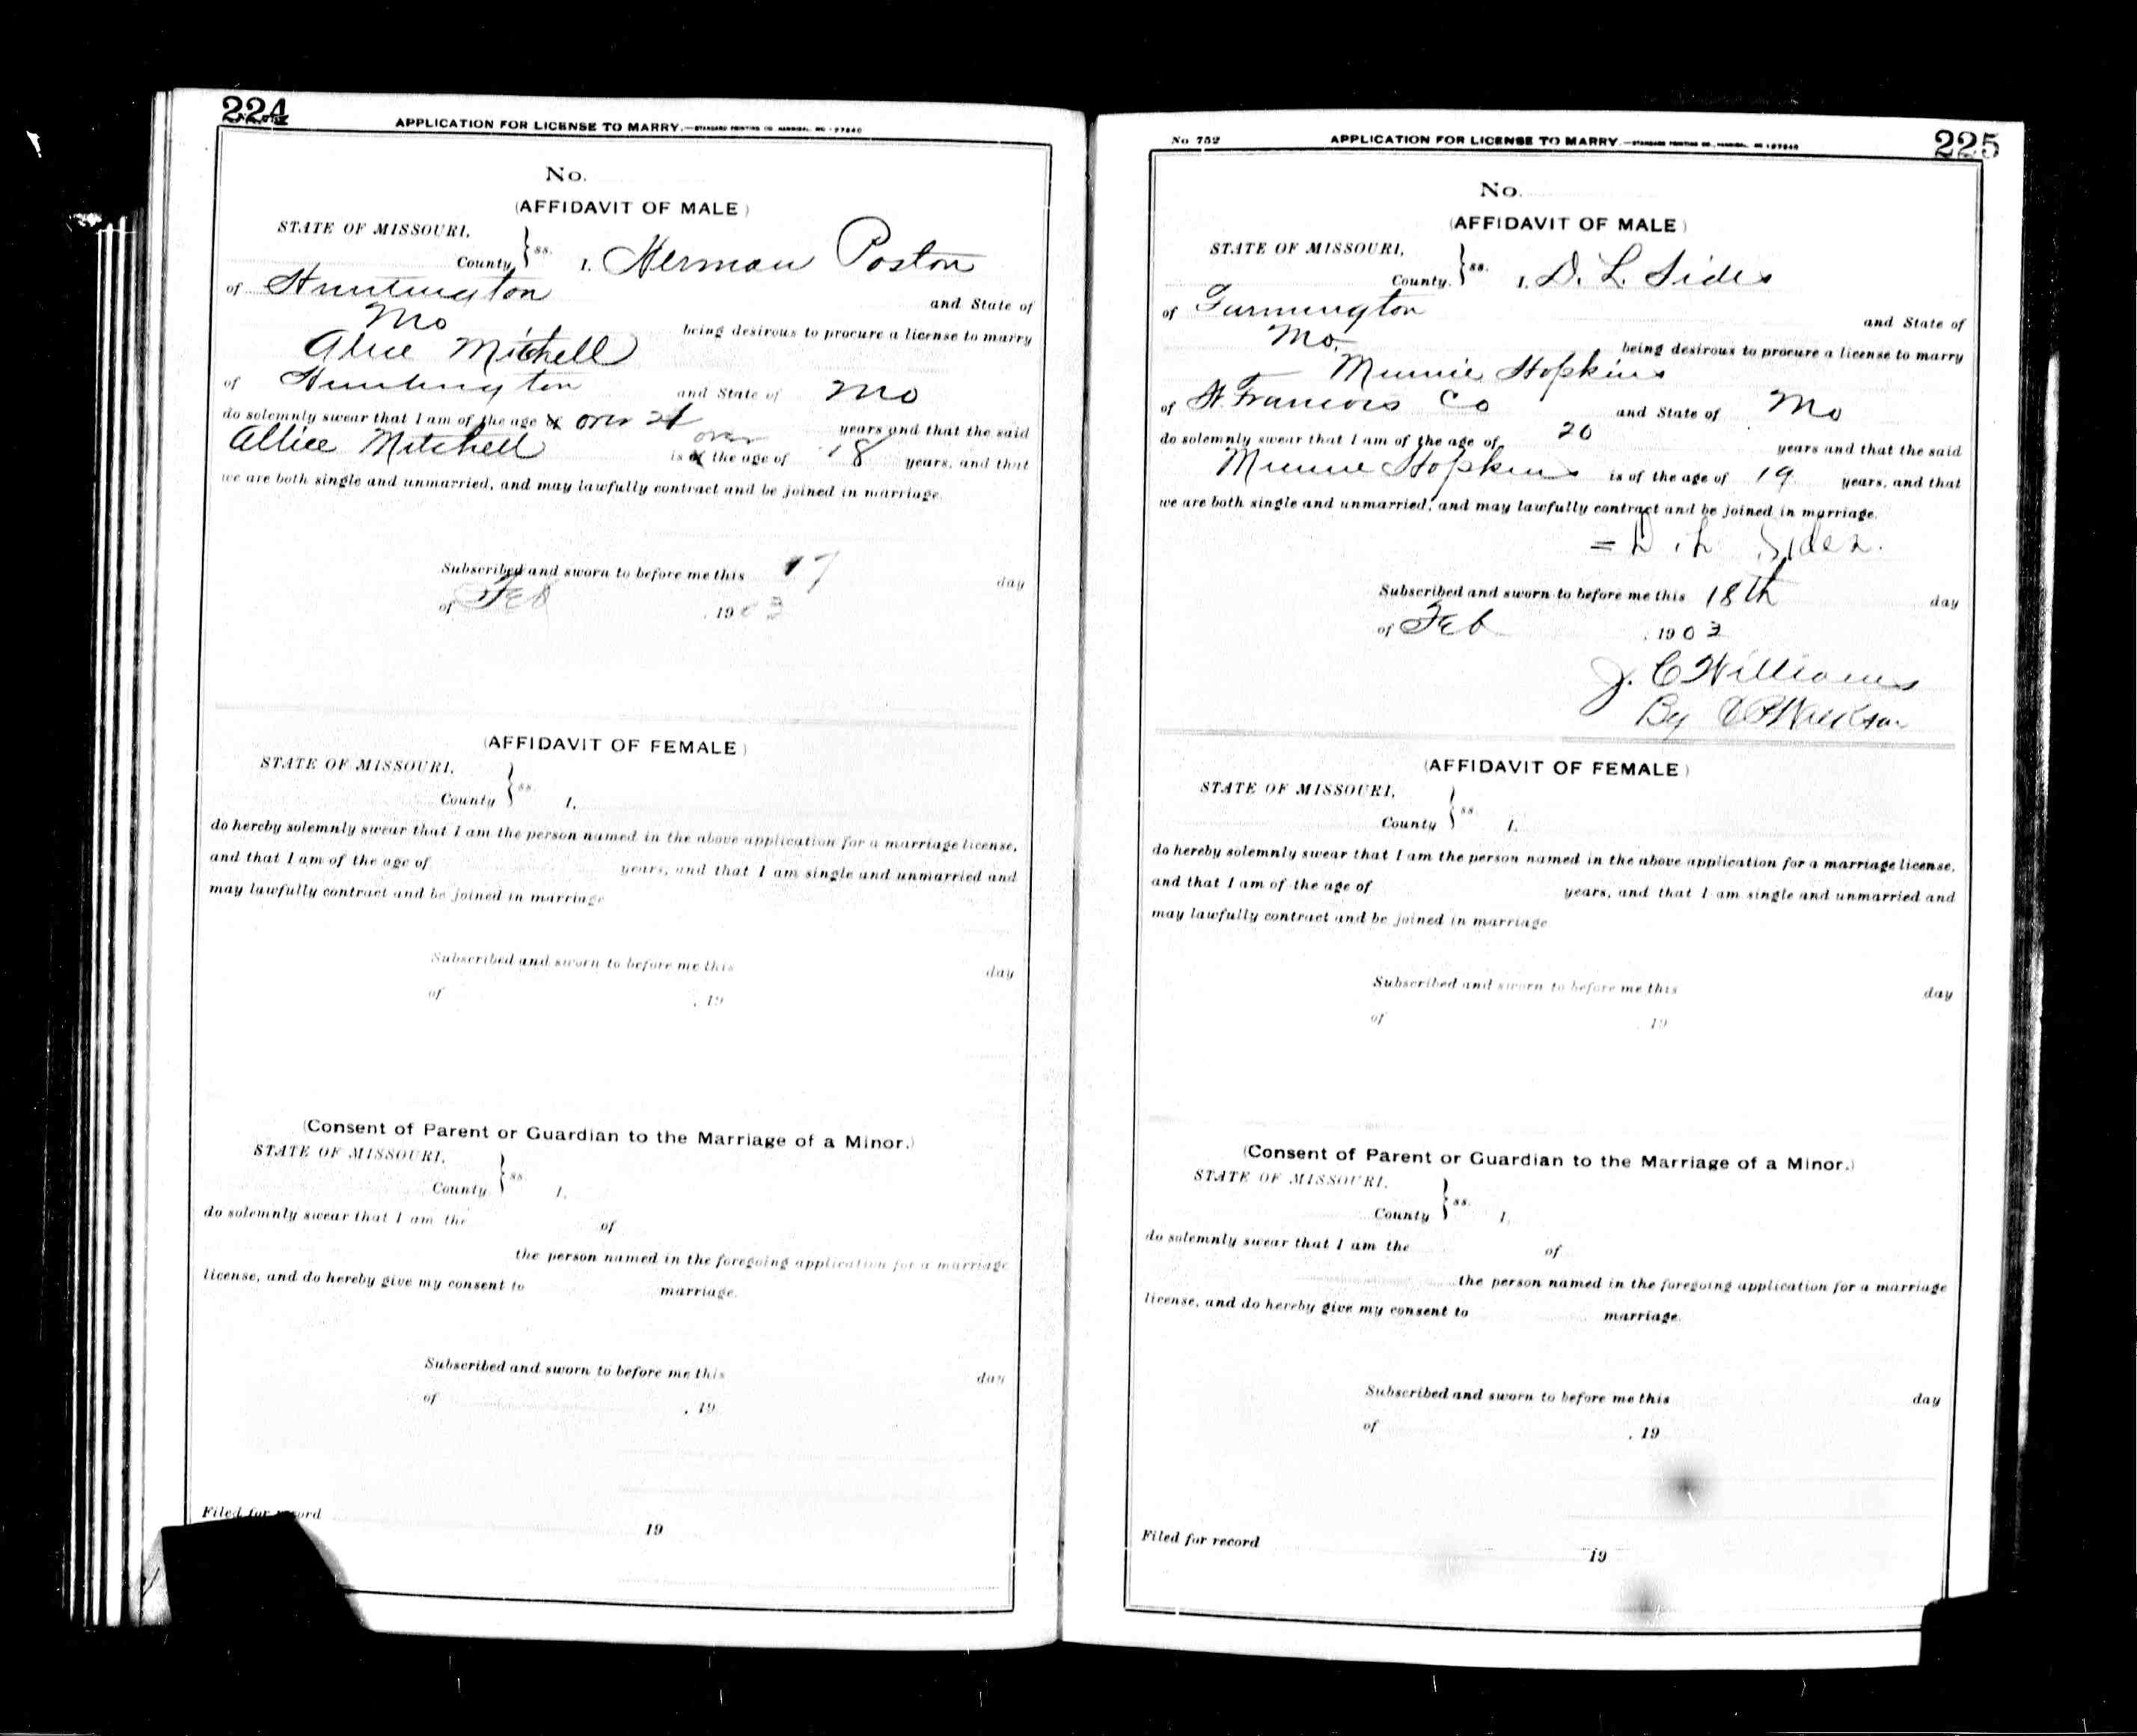 224
APPLICATION FOR LICENSE TO MARRY.—STANDARD PRINTING CO. HANNIBAL, MO.
No.
(AFFIDAVIT OF MALE)
STATE OF MISSOURI,
County } ss. I, Herman Poston
of Huntington and State of
Mo being desirous to procure a license to marry
Alice Mitchell
of Huntington and State of Mo
do solemnly swear that I am of the age of over 21 years and that the said
Allice Mitchell is of the age of over 18 years, and that
we are both single and unmarried, and may lawfully contract and be joined in marriage.
Subscribed and sworn to before me this 17 day
of Feb , 1903
(AFFIDAVIT OF FEMALE)
STATE OF MISSOURI,
County } ss. I,
do hereby solemnly swear that I am the person named in the above application for a marriage license,
and that I am of the age of years, and that I am single and unmarried and
may lawfully contract and be joined in marriage
Subscribed and sworn to before me this day
of , 19
(Consent of Parent or Guardian to the Marriage of a Minor.)
STATE OF MISSOURI,
County } ss. I,
do solemnly swear that I am the of
the person named in the foregoing application for a marriage
license, and do hereby give my consent to marriage.
Subscribed and sworn to before me this day
of , 19
Filed for record 19
No 752 APPLICATION FOR LICENSE TO MARRY.—STANDARD PRINTING CO., HANNIBAL, MO. 225
No.
(AFFIDAVIT OF MALE)
STATE OF MISSOURI,
County. } ss. I, D. L. Sides
of Farmington and State of
Mo. being desirous to procure a license to marry
Minnie Hopkins
of St. Francois Co and State of Mo
do solemnly swear that I am of the age of 20 years and that the said
Minnie Hopkins is of the age of 19 years, and that
we are both single and unmarried, and may lawfully contract and be joined in marriage.
= D. L. Sides.
Subscribed and sworn to before me this 18th day
of Feb , 1903
J. C Williams
By
(AFFIDAVIT OF FEMALE)
STATE OF MISSOURI,
County } ss. I,
do hereby solemnly swear that I am the person named in the above application for a marriage license,
and that I am of the age of years, and that I am single and unmarried and
may lawfully contract and be joined in marriage
Subscribed and sworn to before me this day
of 19
(Consent of Parent or Guardian to the Marriage of a Minor.)
STATE OF MISSOURI,
County } ss. I,
do solemnly swear that I am the of
the person named in the foregoing application for a marriage
license, and do hereby give my consent to marriage.
Subscribed and sworn to before me this day
of , 19
Filed for record 19